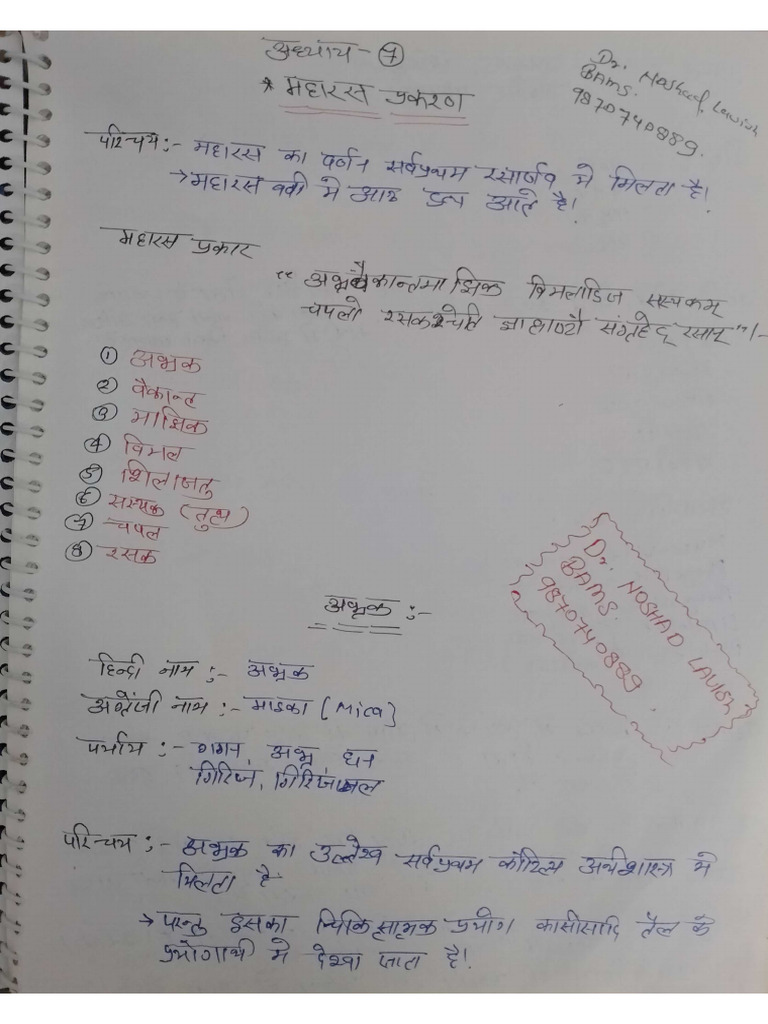 अध्याय - 7
* महारस प्रकरण
Dr. Noshad Lavish
BAMS.
9870740889.
परिचय :- महारस का वर्णन सर्वप्रथम रसार्णव मे मिलता है।
→ महारस वर्ग मे आठ द्रव्य आते है।
महारस प्रकार
“ अभ्रवैक्रान्तमाक्षिक विमलाद्रिज सस्यकम्
चपलो रसकश्चेति ज्ञात्वाष्टौ संग्रहेद् रसान् ” ।-
① अभ्रक
② वैक्रान्त
③ माक्षिक
④ विमल
⑤ शिलाजतु
⑥ सस्यक (तुत्थ)
⑦ चपल
⑧ रसक
Dr. NOSHAD LAVISH
BAMS.
9870740889
अभ्रक :-
हिन्दी नाम :- अभ्रक
अंग्रेजी नाम :- माइका (Mica)
पर्याय :- गगन, अभ्र, घन
गिरिज, गिरिजामल
परिचय :- अभ्रक का उल्लेख सर्वप्रथम कौटिल्य अर्थशास्त्र मे
मिलता है
→ परन्तु इसका चिकित्सात्मक प्रयोग कासीसादि तैल के
प्रयोगार्थ मे देखा जाता है।